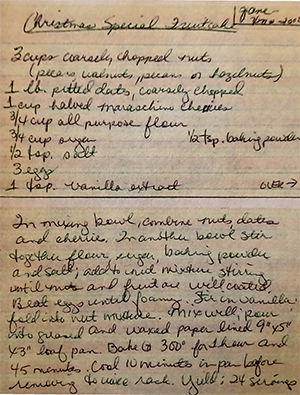 Christmas Special Fruitcake
Jane
3 cups coarsely chopped nuts
(pecans, walnuts, pecans or hazelnuts)
1 lb. pitted dates, coarsely chopped
1 cup halved maraschino cherries
3/4 cup all purpose flour
3/4 cup sugar 1/2 tsp. baking powder
1/2 tsp. salt
3 eggs
1 tsp. vanilla extract OVER →
In mixing bowl, combine nuts, dates
and cherries. In another bowl stir
together flour, sugar, baking powder
and salt; add to nut mixture stirring
until nuts and fruit are well coated.
Beat eggs until foamy. Stir in vanilla
fold into nut mixture. Mix well; pour
into greased and waxed paper lined 9"x5"
x3" loaf pan. Bake @ 300° for 1 hour and
45 minutes. Cool 10 minutes in pan before
removing to wire rack. Yield: 24 servings